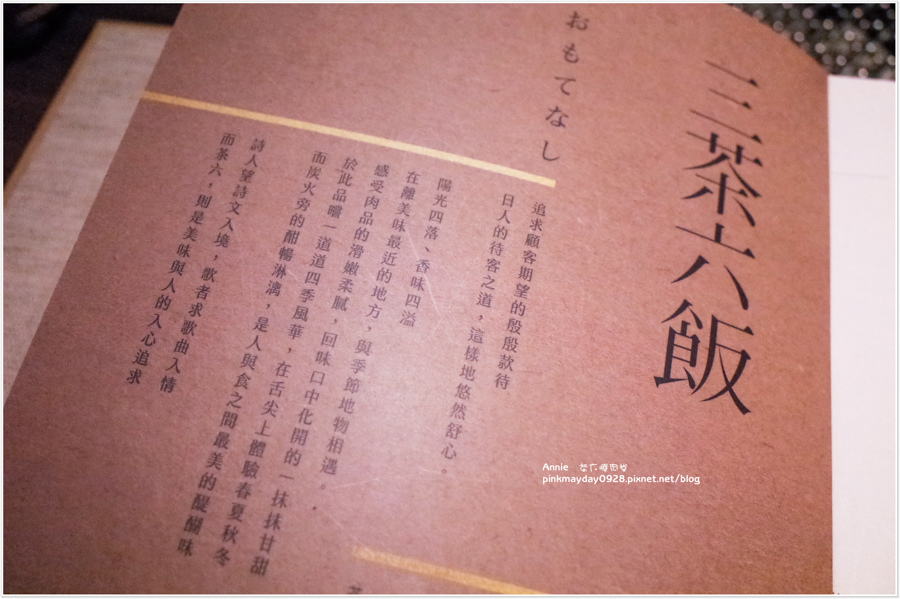 三茶六飯
おもてなし
追求顧客期望的殷殷款待
日人的待客之道，這樣地悠然舒心。
陽光四落、香味四溢
在離美味最近的地方，與季節地物相遇。
感受肉品的滑嫩柔膩，回味口中化開的一抹抹甘甜
於此品嚐一道道四季風華，在舌尖上體驗春夏秋冬
而炭火旁的酣暢淋漓，是人與食之間最美的醍醐味
詩人望詩文入境，歌者求歌曲入情
而茶六，則是美味與人的入心追求
Annie
pinkmayday0928.pixnet.net/blog